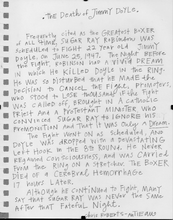 The Death of Jimmy Doyle.
Frequently cited as the greatest boxer
of all time, Sugar Ray Robinson was
scheduled to fight 22 year old Jimmy
Doyle on June 25, 1947. The night before
the fight, Robinson had a vivid dream
in which he killed Doyle in the ring.
He was so disturbed that he made the
decision to cancel the fight. Promoters
who stood to lose thousands if the fight
was called off brought in a Catholic
Priest and a Protestant Minister who
convinced Sugar Ray to ignore his
premonition and that it was only a dream.
The fight went on as scheduled, and
Doyle was dropped with a devastating
left hook in the 8th round. He never
regained consciousness, and was carried
from the ring on a stretcher. The boxer
died of a cerebral hemorrhage
17 hours later.
Although he continued to fight, many
say that Sugar Ray was never the same
after that fateful night.